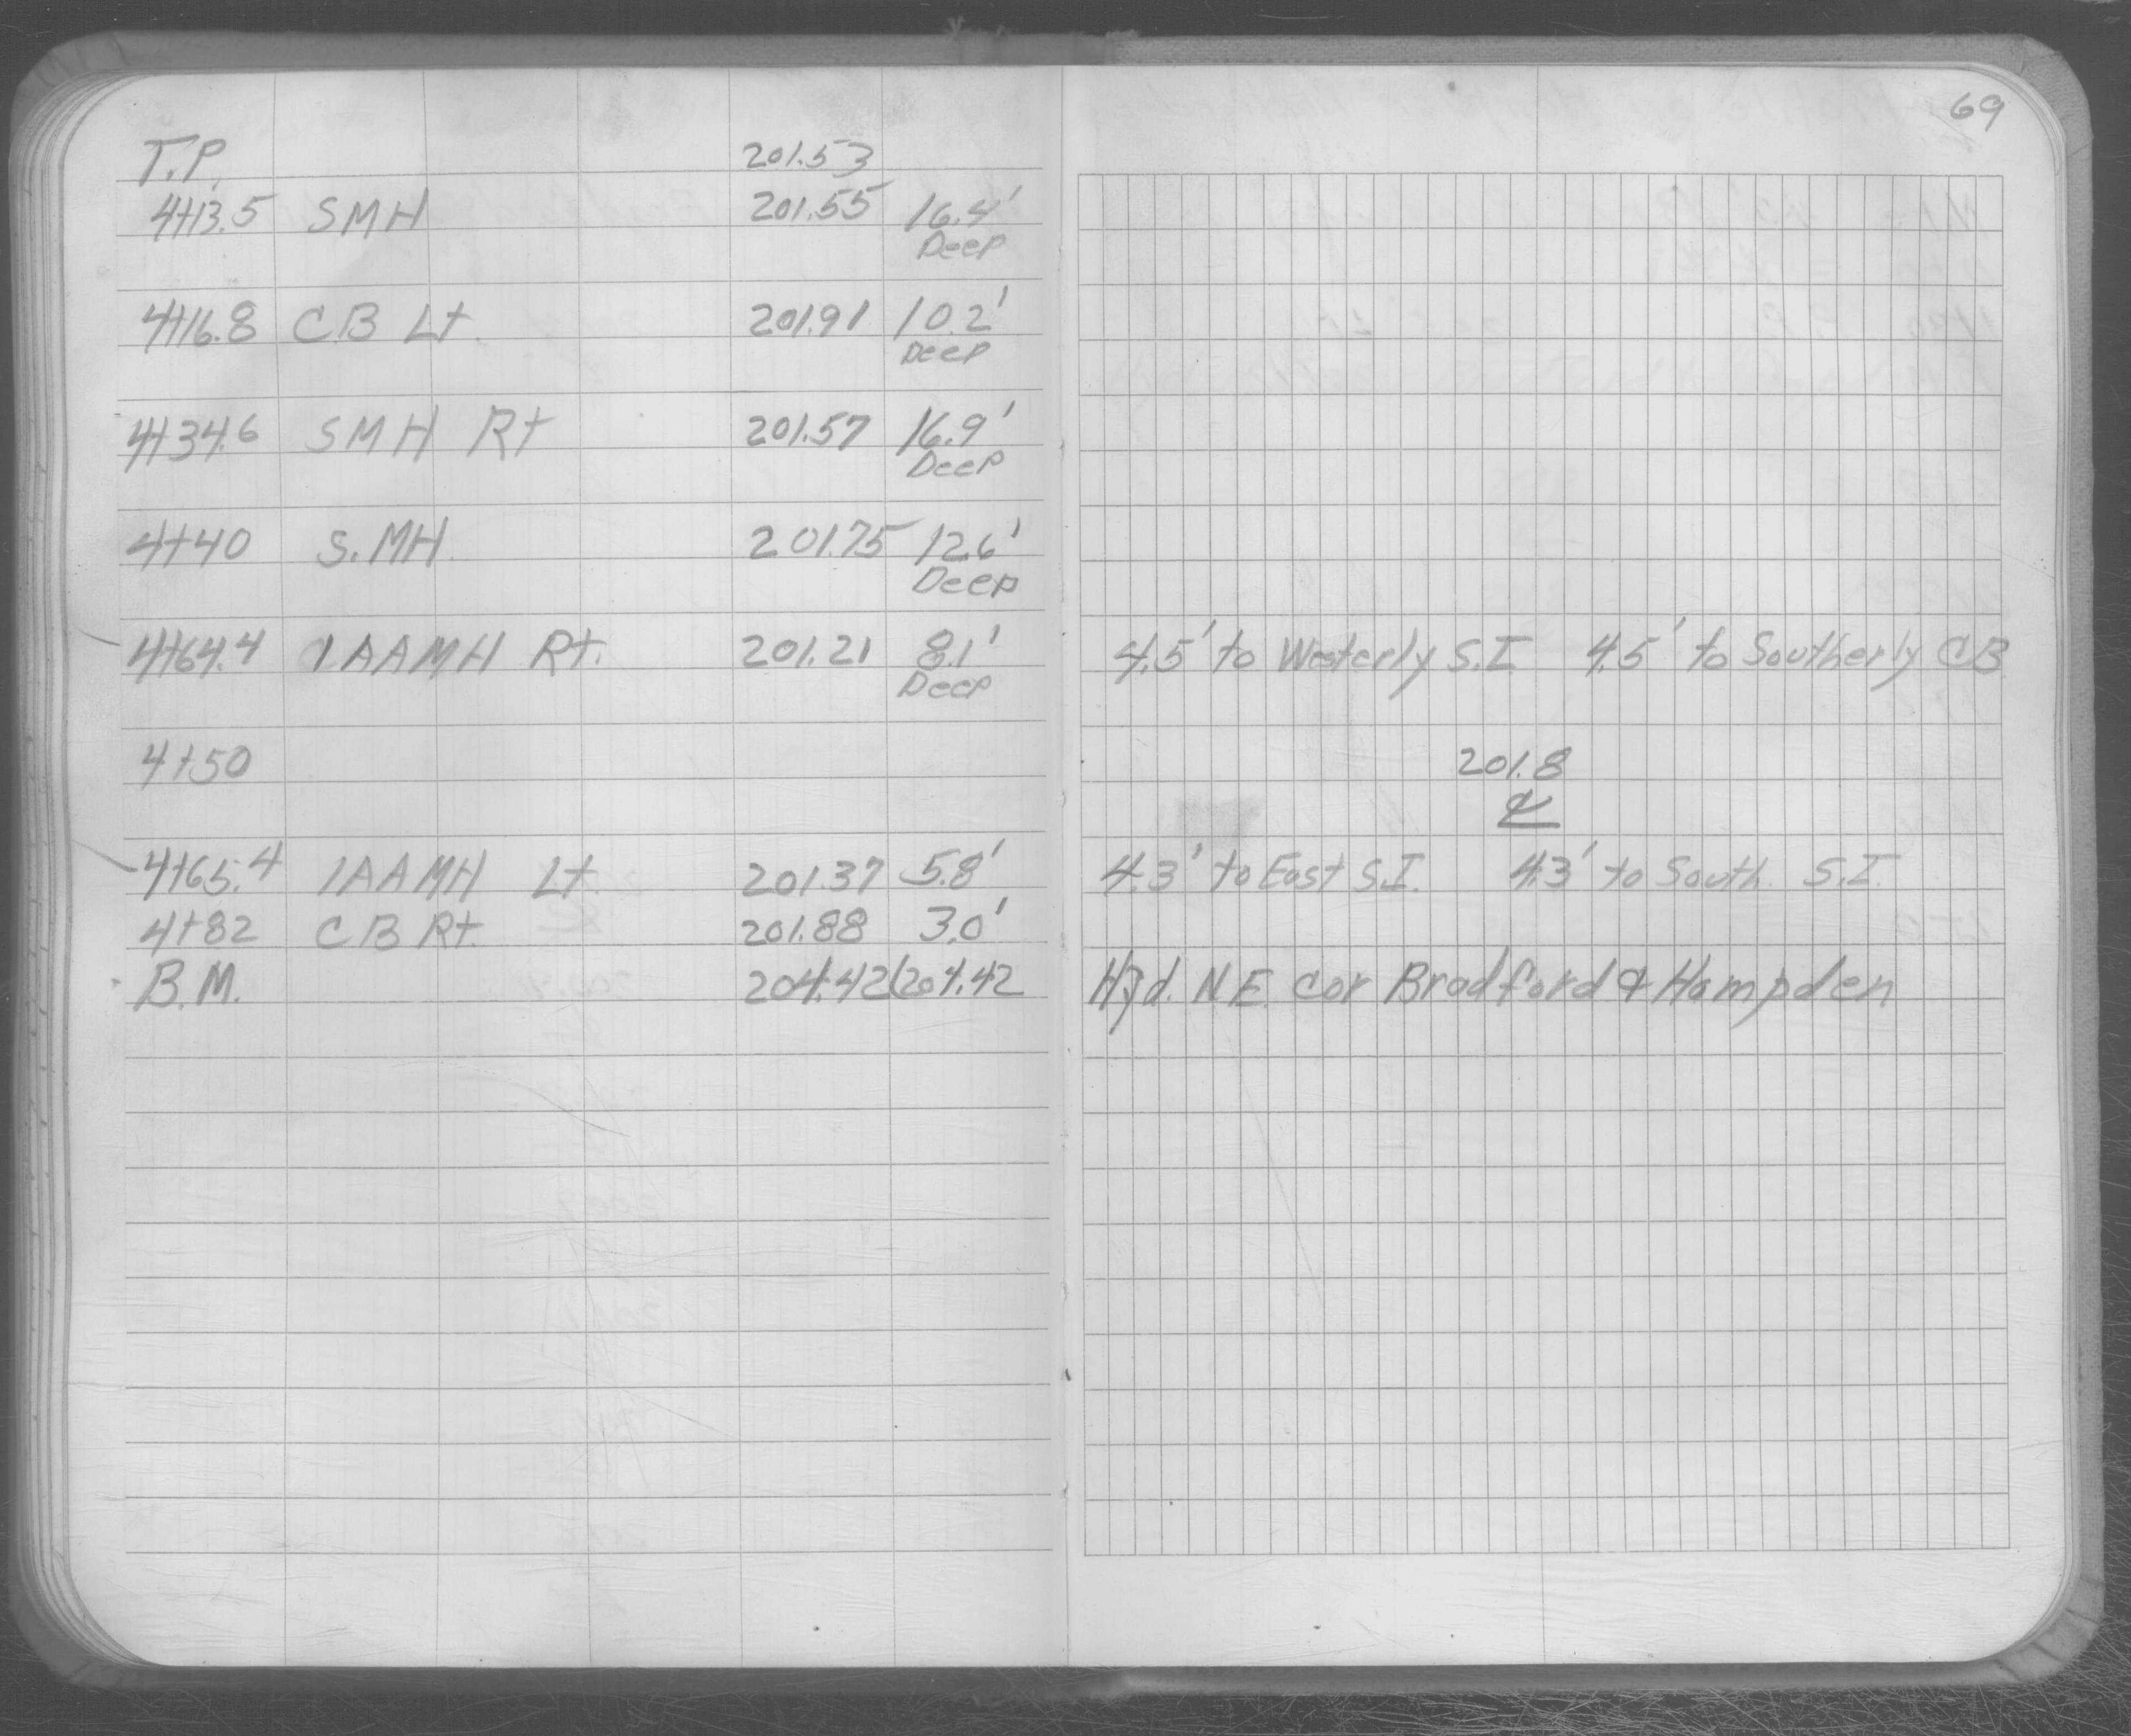 69
T.P. 201.53
4+13.5 SMH 201.55 16.4'
Deep
4+16.8 CB Lt. 201.91 10.2'
Deep
4+34.6 SMH Rt 201.57 16.9'
Deep
4+40 S.MH. 201.75 12.6'
Deep
4+64.4 1AAMH Rt. 201.21 8.1' 4.5' to Westerly S.I. 4.5' to Southerly CB
Deep
4+50 201.8
℄
4+65.4 1AAMH Lt. 201.37 5.8' 4.3' to East S.I. 4.3' to South. S.I.
4+82 CB Rt. 201.88 3.0'
B.M. 204.42 (204.42 Hyd. N.E. cor Bradford & Hampden